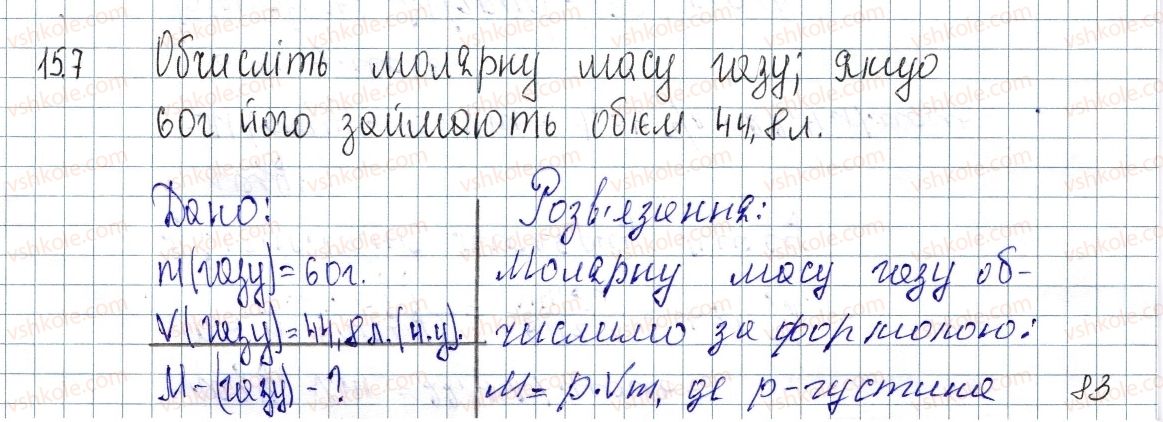 15.7 Обчисліть молярну масу газу, якщо
60г його займають обієм 44,8л.
Дано:
m(газу)=60г.
V(газу)=44,8л.(н.у).
M-(газу)-?
Розв'язання:
Молярну масу газу об-
числимо за формолою:
M=ρ·Vm, де ρ-густина
83